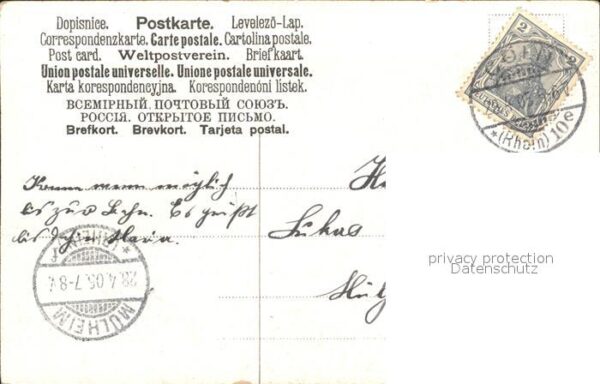 Dopisnice. Postkarte. Levelező-Lap.
Correspondenzkarte. Carte postale. Cartolina postale.
Post card. Weltpostverein. Brief kaart.
Union postale universelle. Unione postale universale.
Karta korespondencyjna. Korespondenóni listek.
ВСЕМІРНЫЙ ПОЧТОВЫЙ СОЮЗЪ.
РОССІЯ. ОТКРЫТОЕ ПИСЬМО.
Brefkort. Brevkort. Tarjeta postal.
2 2
*(Rhein) 10e
Komm wenn möglich
bis zur Bahn. Es grüßt
Maria.
Lukas
MÜLHEIM
28.4.05.7-8
(RHEIN)
privacy protection
Datenschutz